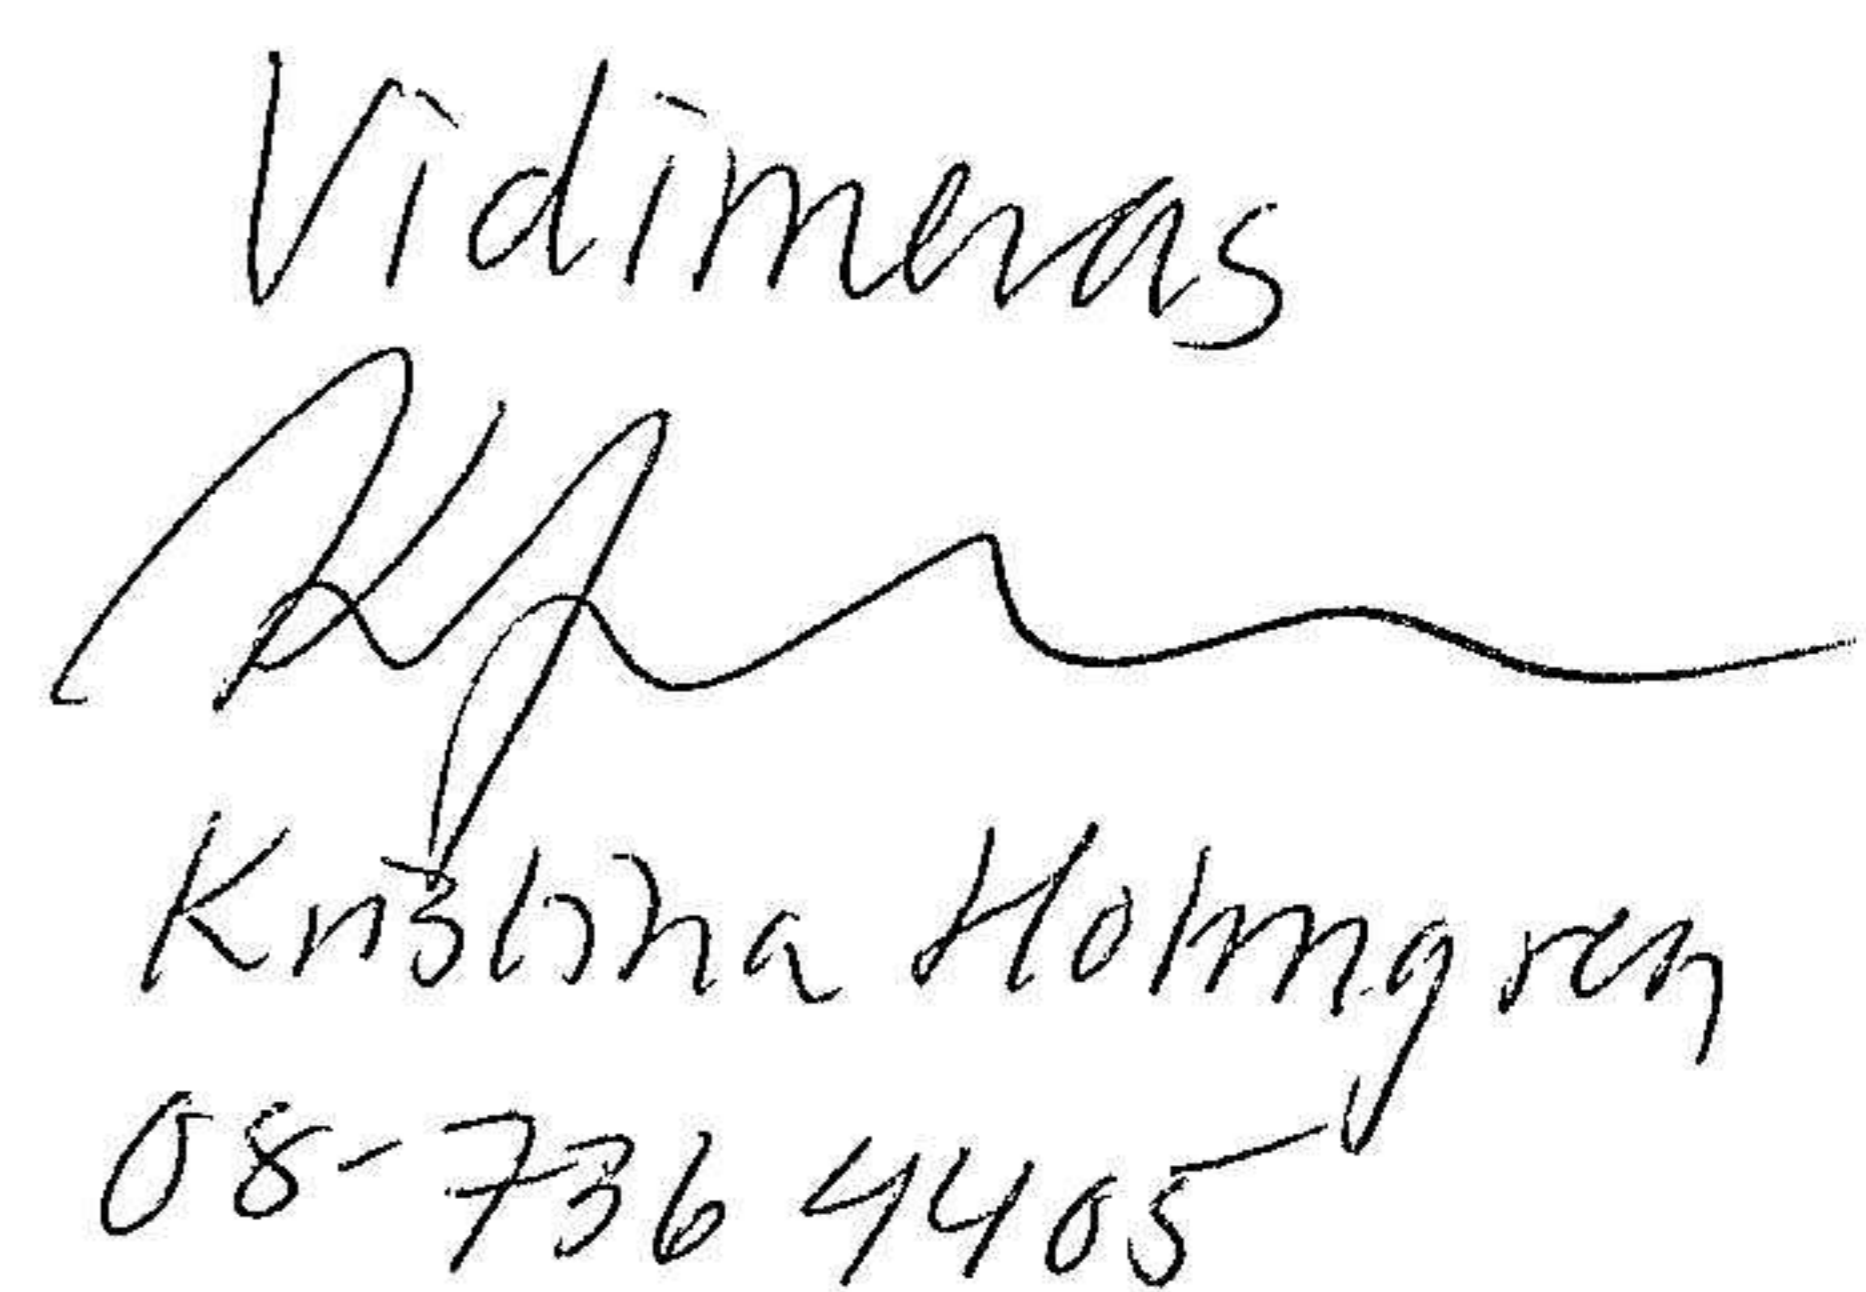 Vidimeras
Kristina Holmgren
08-736 4405